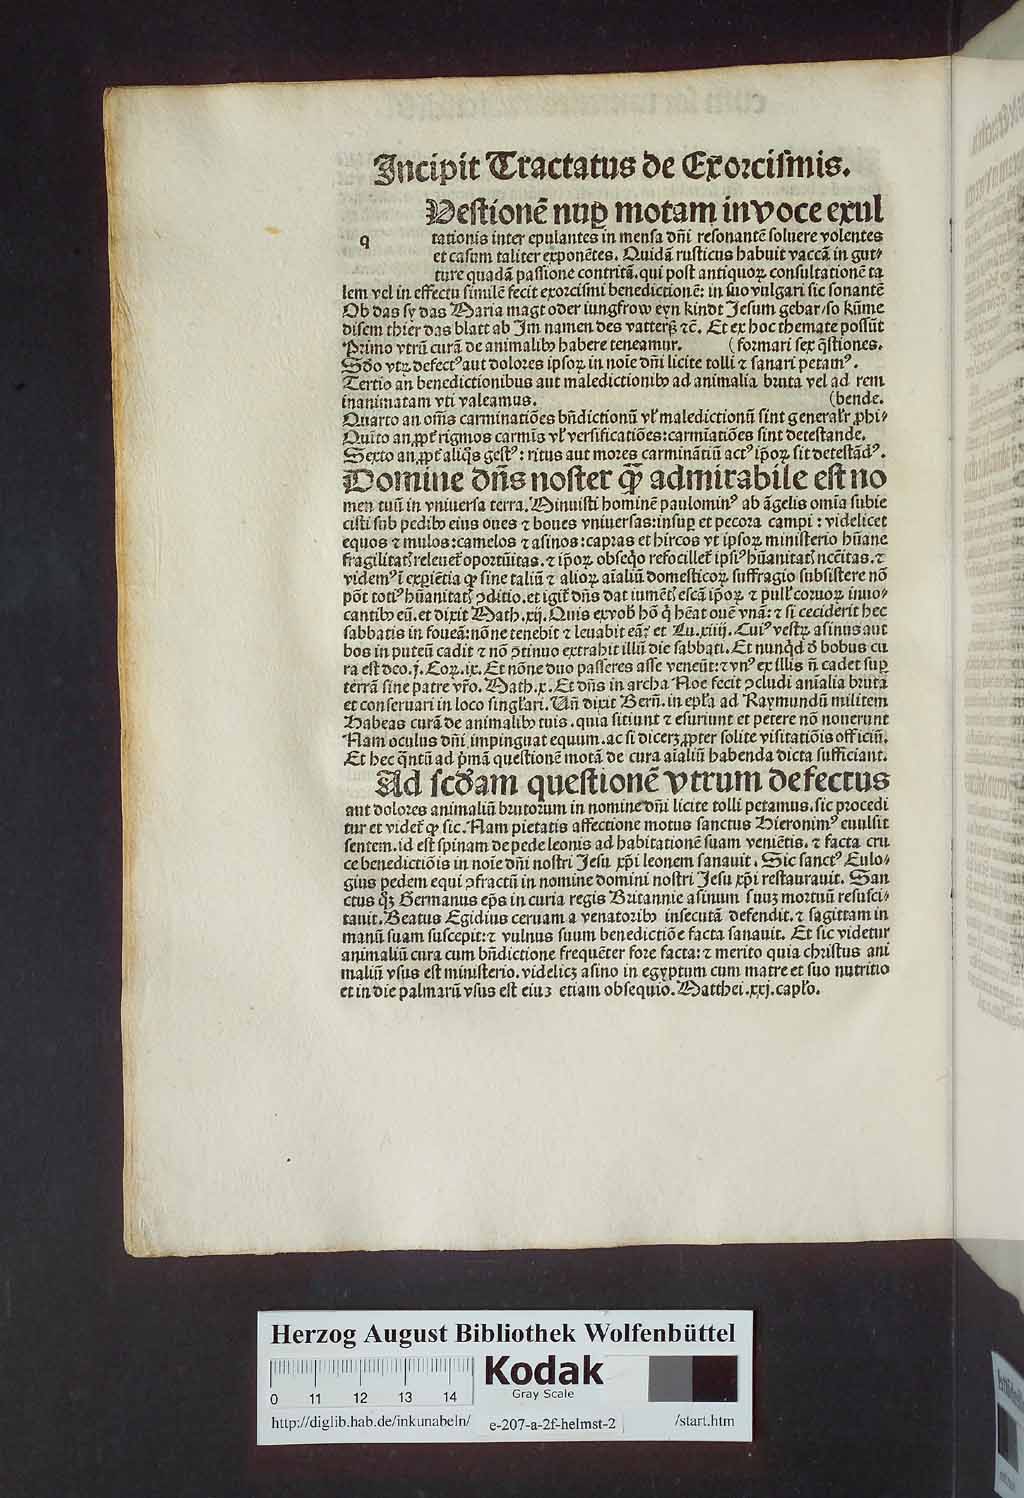 Incipit Tractatus de Exorcismis.
Uestionē nuꝑ motam in voce exul
q tationis inter epulantes in mensa dñi resonantē soluere volentes
et casum taliter exponētes. Quidā rusticus habuit vaccā in gut⸗
ture quadā passione contritā. qui post antiquoꝝ consultationē ta
lem vel in effectu similē fecit exorcismi benedictionē: in suo vulgari sic sonantē
Ob das sy das Maria magt oder iungfrow eyn kindt Jesum gebar/so kūme
disem thier das blatt ab Im namen des vatterß ⁊c̄. Et ex hoc themate possūt
Primo vtrū curā de animalibꝰ habere teneamur. (formari sex q̄stiones.
Scd̄o vtꝝ defectꝰ aut dolores ipsoꝝ in noīe dñi licite tolli ⁊ sanari petamꝰ.
Tertio an benedictionibus aut maledictionibꝰ ad animalia bruta vel ad rem
inanimatam vti valeamus. (bende.
Quarto an om̄is carminatiōes bn̄dictionū vl̓ maledictionū sint general̓r ꝓhi⸗
Quīto an ꝓpt̓ rigmos carmīs vl̓ versificatiōes: carmīatiōes sint detestande.
Sexto an ꝓpt̓ aliq̄s gestꝰ: ritus aut mores carminātiū actꝰ ip̄oꝝ sit detestādꝰ.
Domine dn̄s noster q̄ꝫ admirabile est no
men tuū in vniuersa terra. Minuisti hominē paulominꝰ ab āgelis omīa subie
cisti sub pedibꝰ eius oues ⁊ boues vniuersas: insuꝑ et pecora campi: videlicet
equos ⁊ mulos: camelos ⁊ asinos: capras et hircos vt ipsoꝝ ministerio hūane
fragilitatꝭ releuet̓ oportūitas. ⁊ ip̄oꝝ obseq̄o refocillet̓ ipsiꝰ hūanitatꝭ nēcitas. ⁊
videmꝰ ī exꝑiētia ꝙ sine taliū ⁊ alioꝝ aīaliū domesticoꝝ suffragio subsistere nō
pōt totiꝰ hūanitatꝭ ꝯditio. et igit̓ dn̄s dat iumētꝭ escā ip̄oꝝ ⁊ pull̓ coruoꝝ inuo⸗
cantibꝰ eū. et dixit Math. xij. Quis ex vob̓ hō q̄ hēat ouē vnā: ⁊ si ceciderit hec
sabbatis in foueā: nōne tenebit ⁊ leuabit eā? et Lu. xiiij. Cuiꝰ vestꝝ asinus aut
bos in puteū cadit ⁊ nō ꝯtinuo extrahit illū die sabbati. Et nunq̄d ō bobus cu
ra est deo. j. Coꝝ. ix. Et nōne duo passeres asse veneūt: ⁊ vnꝰ ex illis n̄ cadet suꝑ
terrā sine patre vr̄o. Math. x. Et dn̄s in archa Noe fecit ꝯcludi anīalia bruta
et conseruari in loco singl̓ari. Un̄ dixit Bern̄. in epl̓a ad Raymundū militem
Habeas curā de animalibꝰ tuis. quia sitiunt ⁊ esuriunt et petere nō nouerunt
Nam oculus dn̄i impinguat equum. ac si dicerꝫ, ꝓpter solite visitatiōis officiū.
Et hec q̄ntū ad p̄mā questionē motā de cura aīaliū habenda dicta sufficiant.
Ad scd̄am questionē vtrum defectus
aut dolores animaliū brutorum in nomine dn̄i licite tolli petamus. sic procedi
tur et videt̓ ꝙ sic. Nam pietatis affectione motus sanctus Hieronimꝰ euulsit
sentem. id est spinam de pede leonis ad habitationē suam veniētis. ⁊ facta cru
ce benedictiōis in noīe dn̄i nostri Jesu xp̄i leonem sanauit. Sic sanctꝰ Eulo⸗
gius pedem equi ꝯfractū in nomine domini nostri Jesu xp̄i restaurauit. San
ctus qꝫ Germanus ep̄s in curia regis Britannie asinum suuꝫ mortuū resusci⸗
tauit. Beatus Egidius ceruam a venatoribꝰ insecutā defendit. ⁊ sagittam in
manū suam suscepit: ⁊ vulnus suum benedictiōe facta sanauit. Et sic videtur
animaliū cura cum bn̄dictione frequēter fore facta: ⁊ merito quia christus ani
maliū vsus est ministerio. videlicꝫ asino in egyptum cum matre et suo nutritio
et in die palmarū vsus est eiuꝫ etiam obsequio. Matthei. xxj. capl̓o.
Herzog August Bibliothek Wolfenbüttel
Kodak
Gray Scale
0 11 12 13 14
http://diglib.hab.de/inkunabeln/ e-207-a-2f-helmst-2 /start.htm